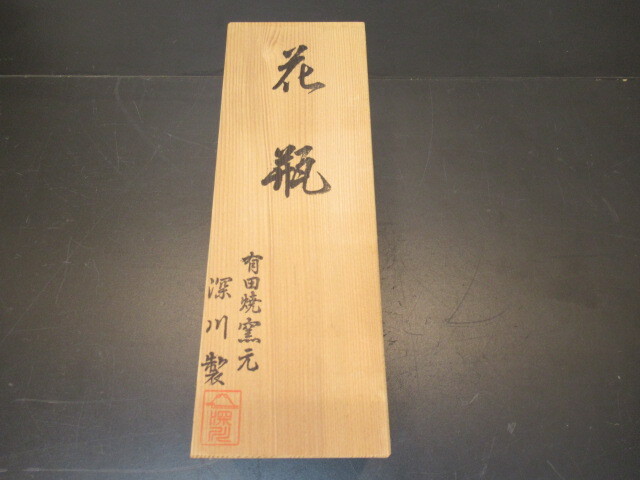 花瓶
有田焼窯元
深川製
深川